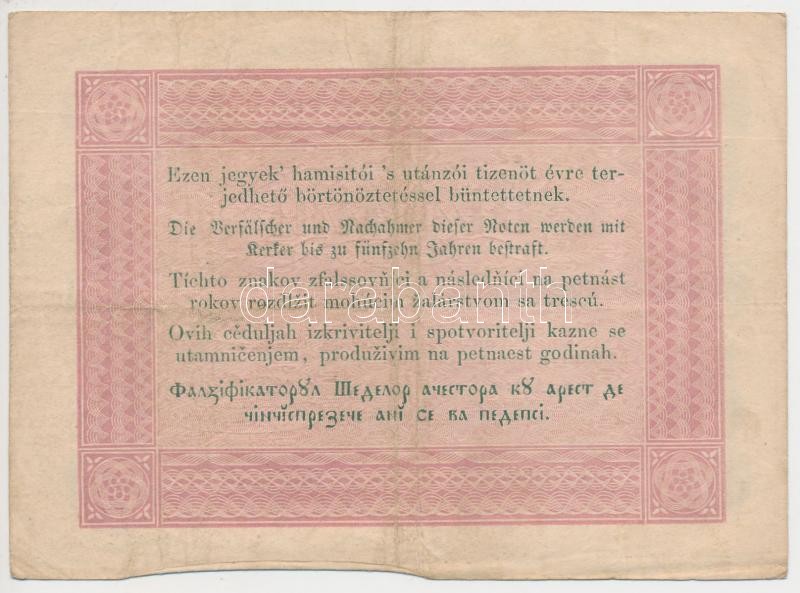 Ezen jegyek’ hamisitói ’s utánzói tizenöt évre ter-
jedhető börtönöztetéssel büntettetnek.
Die Verfälscher und Nachahmer dieser Noten werden mit
Kerker bis zu fünfzehn Jahren bestraft.
Tíchto znakov zfalssovňjci a následňíci na petnást
rokov rozdĺžit mohúcim žalárstvom sa trescú.
darabanth
Ovih cĕduljah izkrivitelji i spotvoritelji kazne se
utamničenjem, produživim na petnaest godinah.
Фалziфiкаторȣл Шеделор ачестора кȣ арест де
чiнчiспрezече анi се ва педепсi.